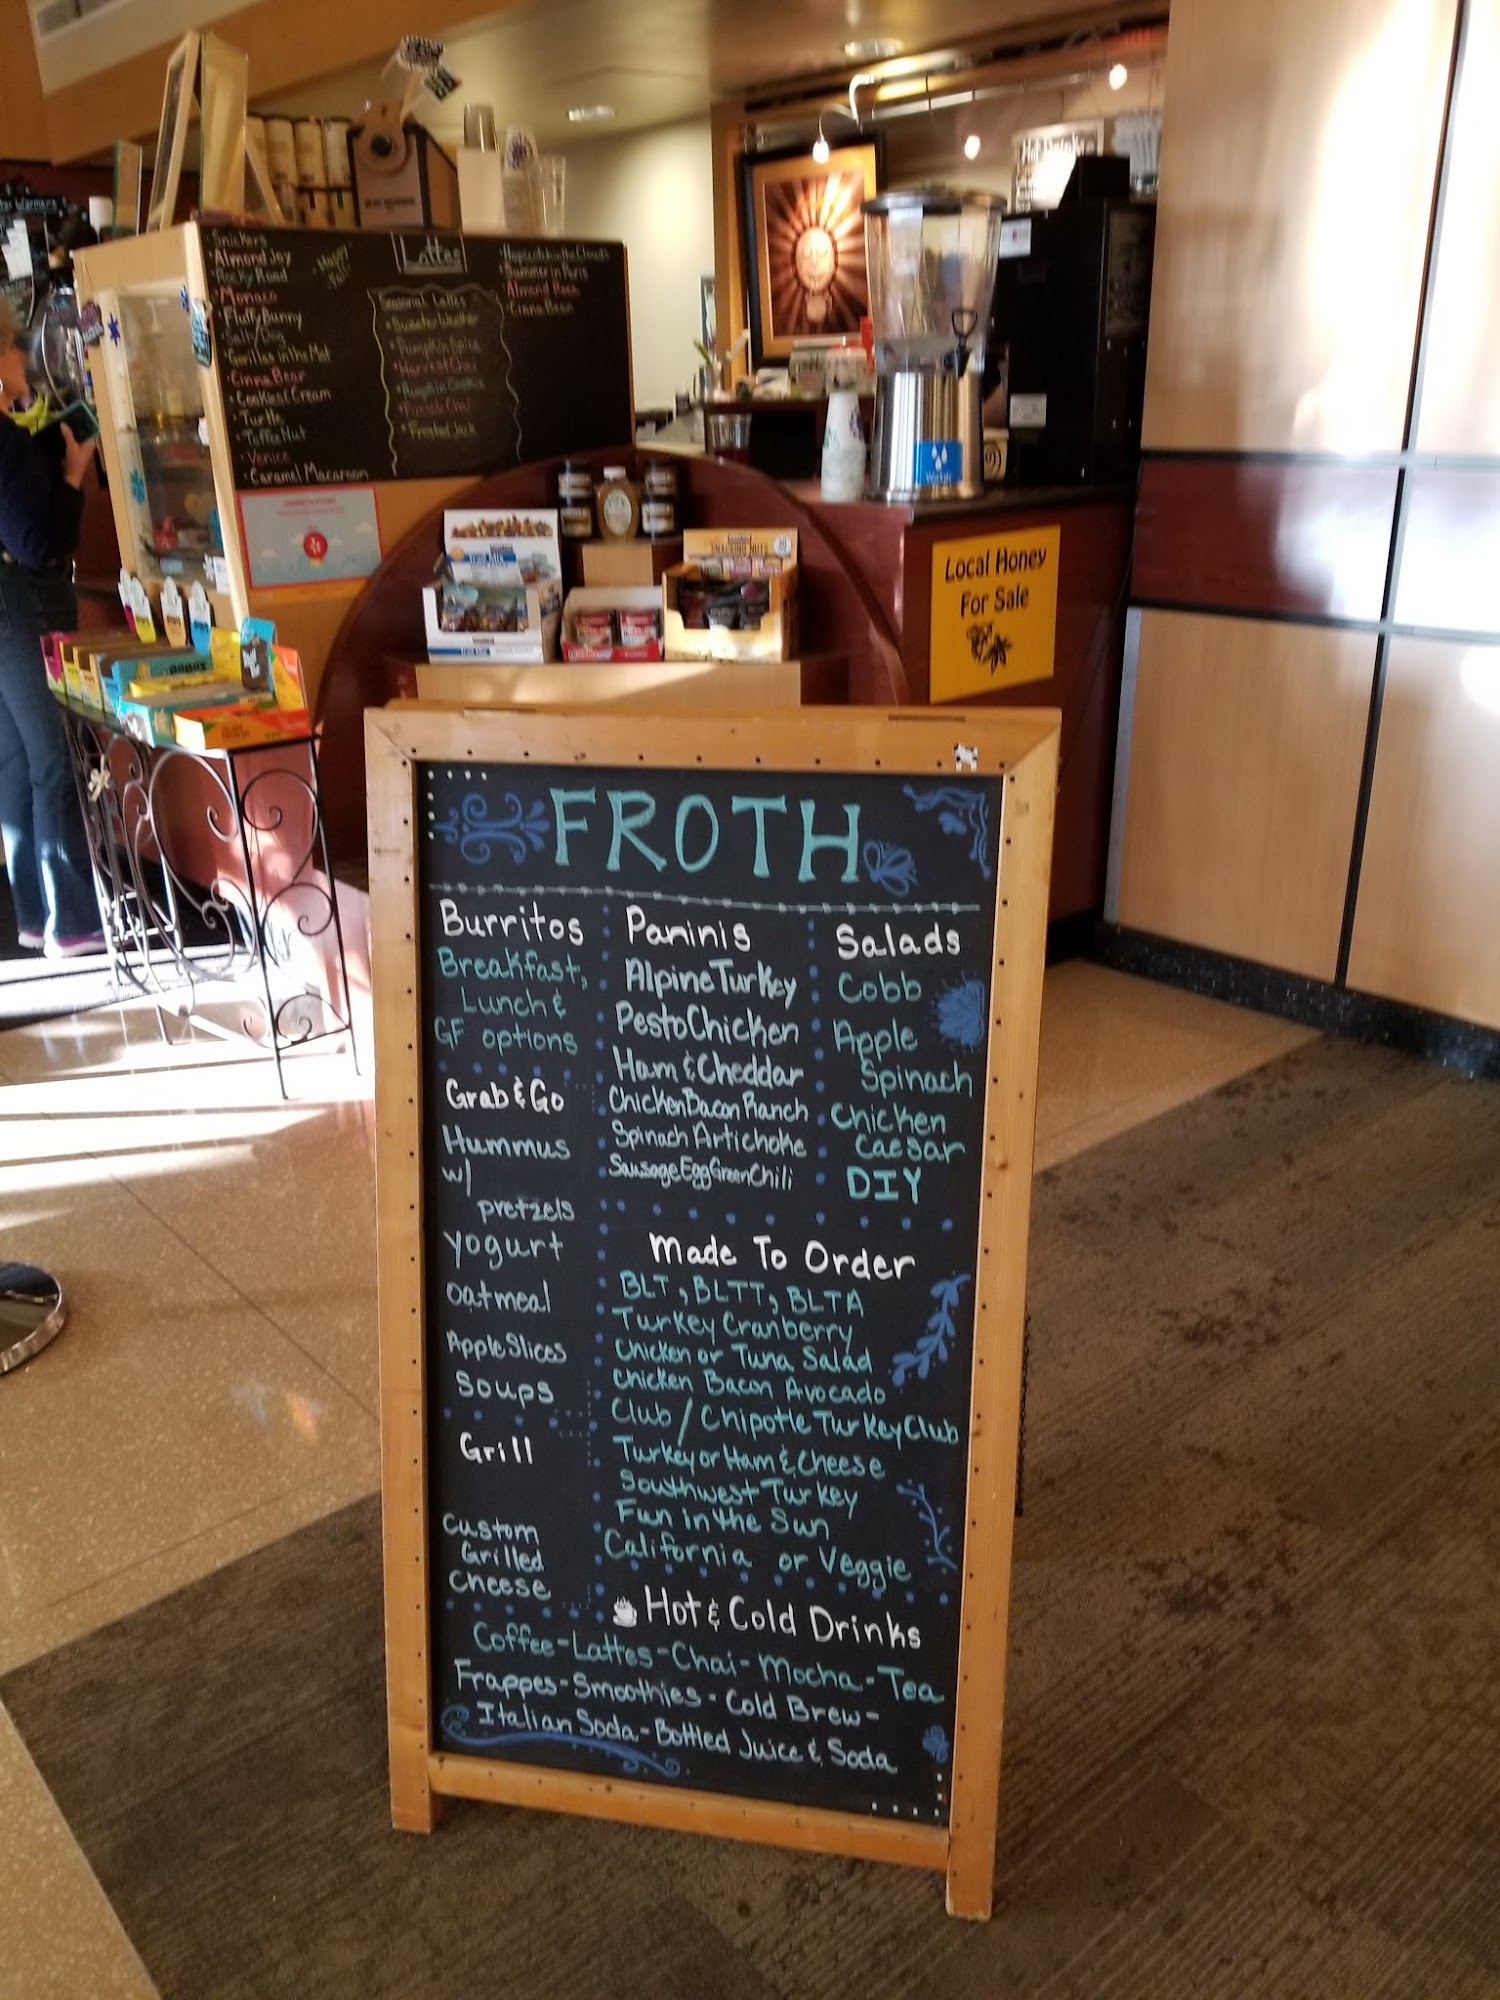 Snickers
Almond Joy
Rocky Road
Monaco
Fluffy Bunny
Salty Dog
Gorillas in the Mist
Cinna Bear
Cookies & Cream
Turtle
Toffee Nut
Venice
Caramel Macaroon
Lattes
Seasonal Lattes
Sweater Weather
Pumpkin Spice
Harvest Chai
Pumpkin Cookie
Fireside Chai
Frosted Jack
Summer in Paris
Almond Rose
Cinna Bean
Water
Local Honey
For Sale
FROTH
Burritos
Breakfast,
Lunch &
GF options
Grab & Go
Hummus
w/
pretzels
yogurt
oatmeal
Apple Slices
Soups
Grill
Custom
Grilled
Cheese
Paninis
Alpine Turkey
Pesto Chicken
Ham & Cheddar
Chicken Bacon Ranch
Spinach Artichoke
Sausage Egg Green Chili
Salads
Cobb
Apple
Spinach
Chicken
Caesar
DIY
Made To Order
BLT, BLTT, BLTA
Turkey Cranberry
Chicken or Tuna Salad
Chicken Bacon Avocado
Club / Chipotle Turkey Club
Turkey or Ham & Cheese
Southwest Turkey
Fun in the Sun
California or Veggie
Hot & Cold Drinks
Coffee - Lattes - Chai - Mocha - Tea
Frappes - Smoothies - Cold Brew -
Italian Soda - Bottled Juice & Soda